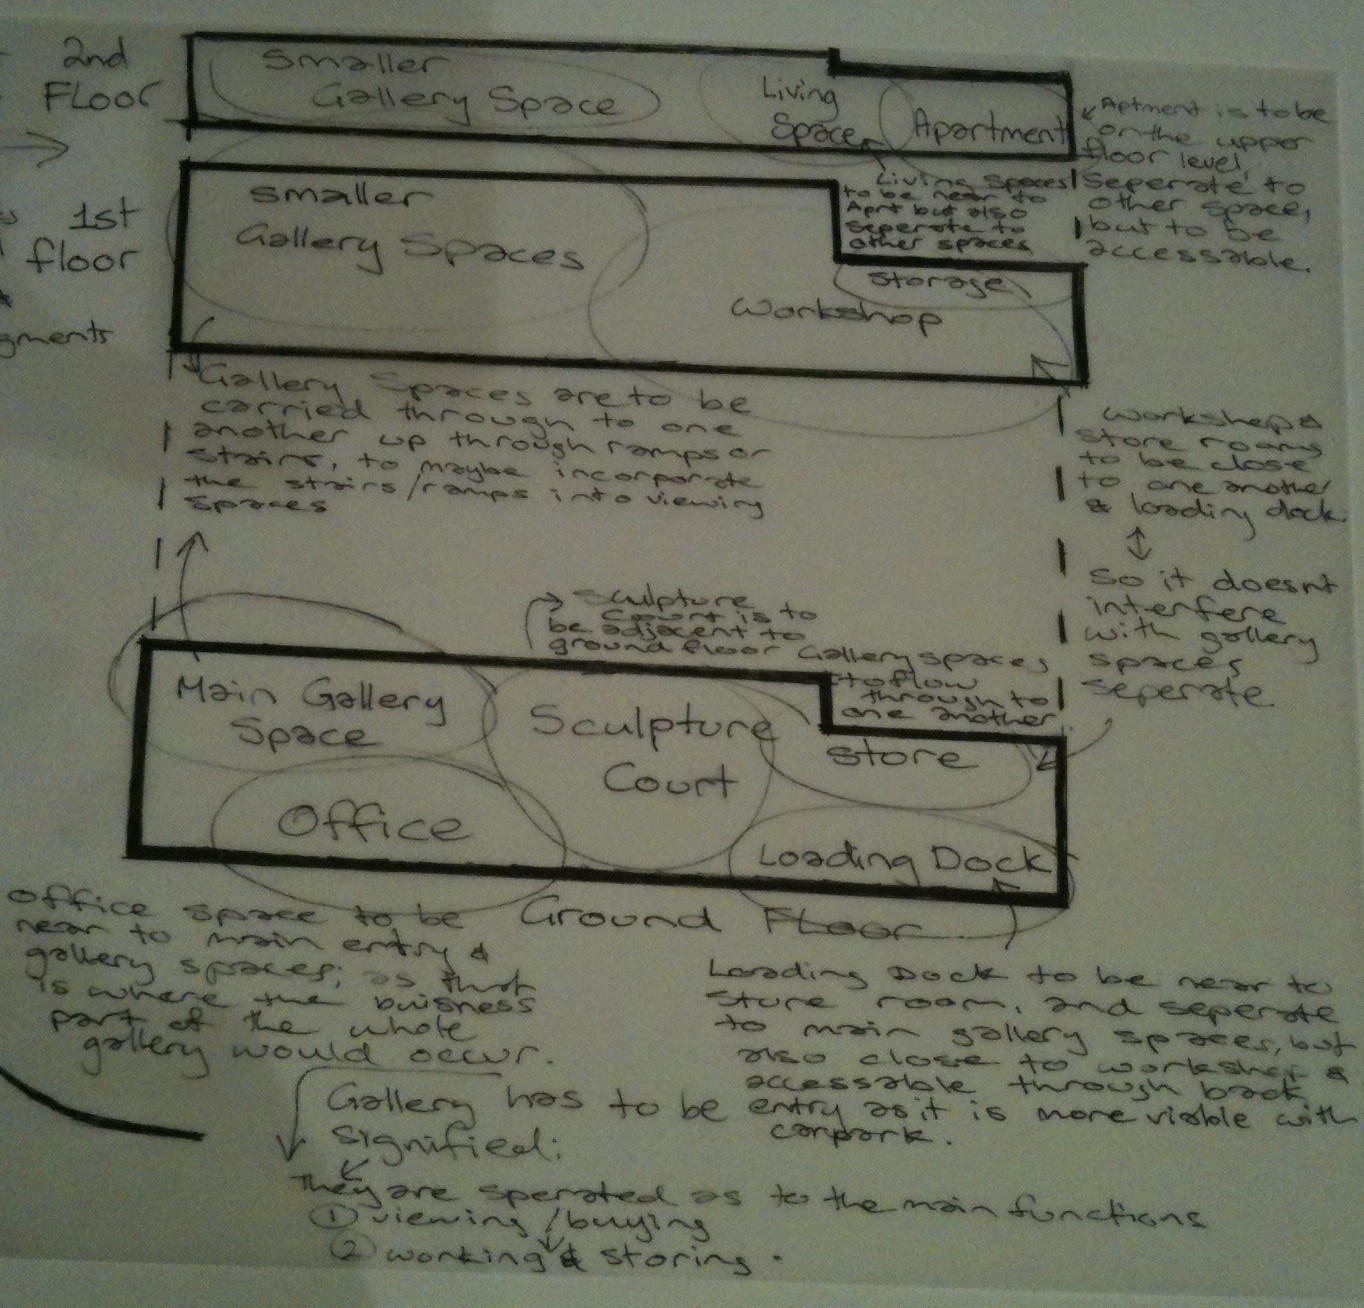 2nd
Floor
Smaller
Gallery Space
Living
Space
Apartment
Aptment is to be
on the upper
floor level,
seperate to
other space,
but to be
accessable.
Living Spaces
to be near to
Aprt but also
seperate to
other spaces
1st
floor
gments
smaller
Gallery Spaces
storage
workshop
Gallery Spaces are to be
carried through to one
another up through ramps or
stairs, to maybe incorporate
the stairs/ramps into viewing
spaces
workshop &
store rooms
to be close
to one another
& loading dock
so it doesnt
interfere
with gallery
spaces
seperate.
Sculpture
Court is to
be adjacent to
ground floor Gallery spaces
to flow
through to
one another
Main Gallery
Space
Sculpture
Court
store
Office
Loading Dock
Ground Floor
Office space to be
near to main entry &
gallery spaces; as that
is where the buisness
part of the whole
gallery would occur.
Loading Dock to be near to
store room, and seperate
to main gallery spaces, but
also close to workshop &
accessable through back
entry as it is more viable with
carpark.
Gallery has to be
signified:
They are sperated as to the main functions
① viewing/buying
② working & storing.